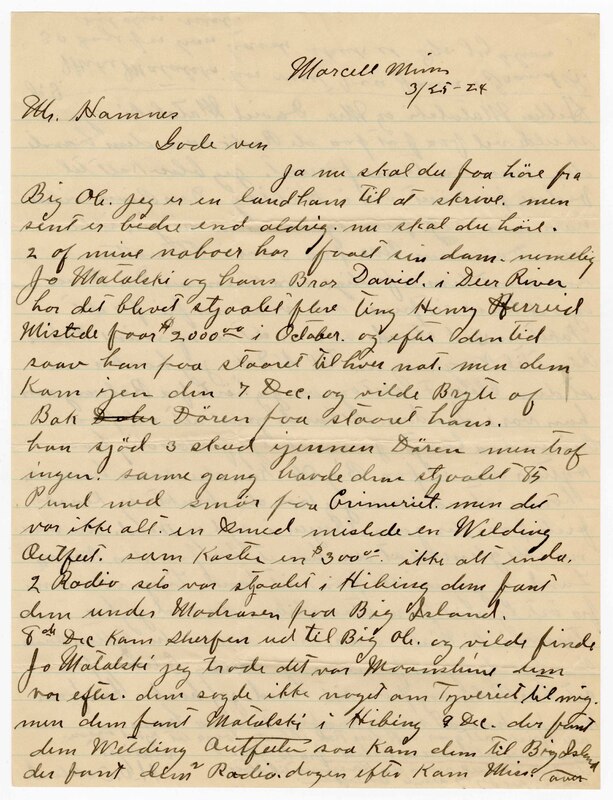 Marcell Minn
3/25-24
Mr. Hamnes
Gode ven
Ja nu skal du faa höre fra
Big Ole. jeg er en landhans til at skrive. men
sent er bedre end aldrig. nu skal du höre.
2 of mine naboer har faaet sin dam. nemelig
Jo Matalski og hans Bror David. i Deer River
har det blevet stjaalet flere ting Henry Herreid
Mistede faar $2000 00 i October. og efter den tid
saav han paa staaret til hver nat. men dem
Kam igen den 7 Dec. og vilde Bryte af
Bak Dören paa staaret hans.
han sjöd 3 skud igennen Dören men traf
ingen. samme gang havde dem stjaalet 85
Pund med smör fra Crimeriet. men det
var ikke alt. en Smed mistede en Welding
Outfeet. sam Kaster en $300 00. ikke alt enda.
2 Radio sets var stjaalet i Hibing dem fant
dem under Madrasen paa Big Island.
8 de Dec Kam Sherfen ud til Big Ole. og vilde finde
Jo Matalski jeg trode det var Moonshine dem
var efter. dem sagde ikke noget am Tyveriet til mig.
men dem fant Matalski i Hibing 9 Dec. der fant
dem Welding Outfeeten saa Kam dem til Big Island
der fant dem 2 Radio. dagen efter Kam Miss.
over